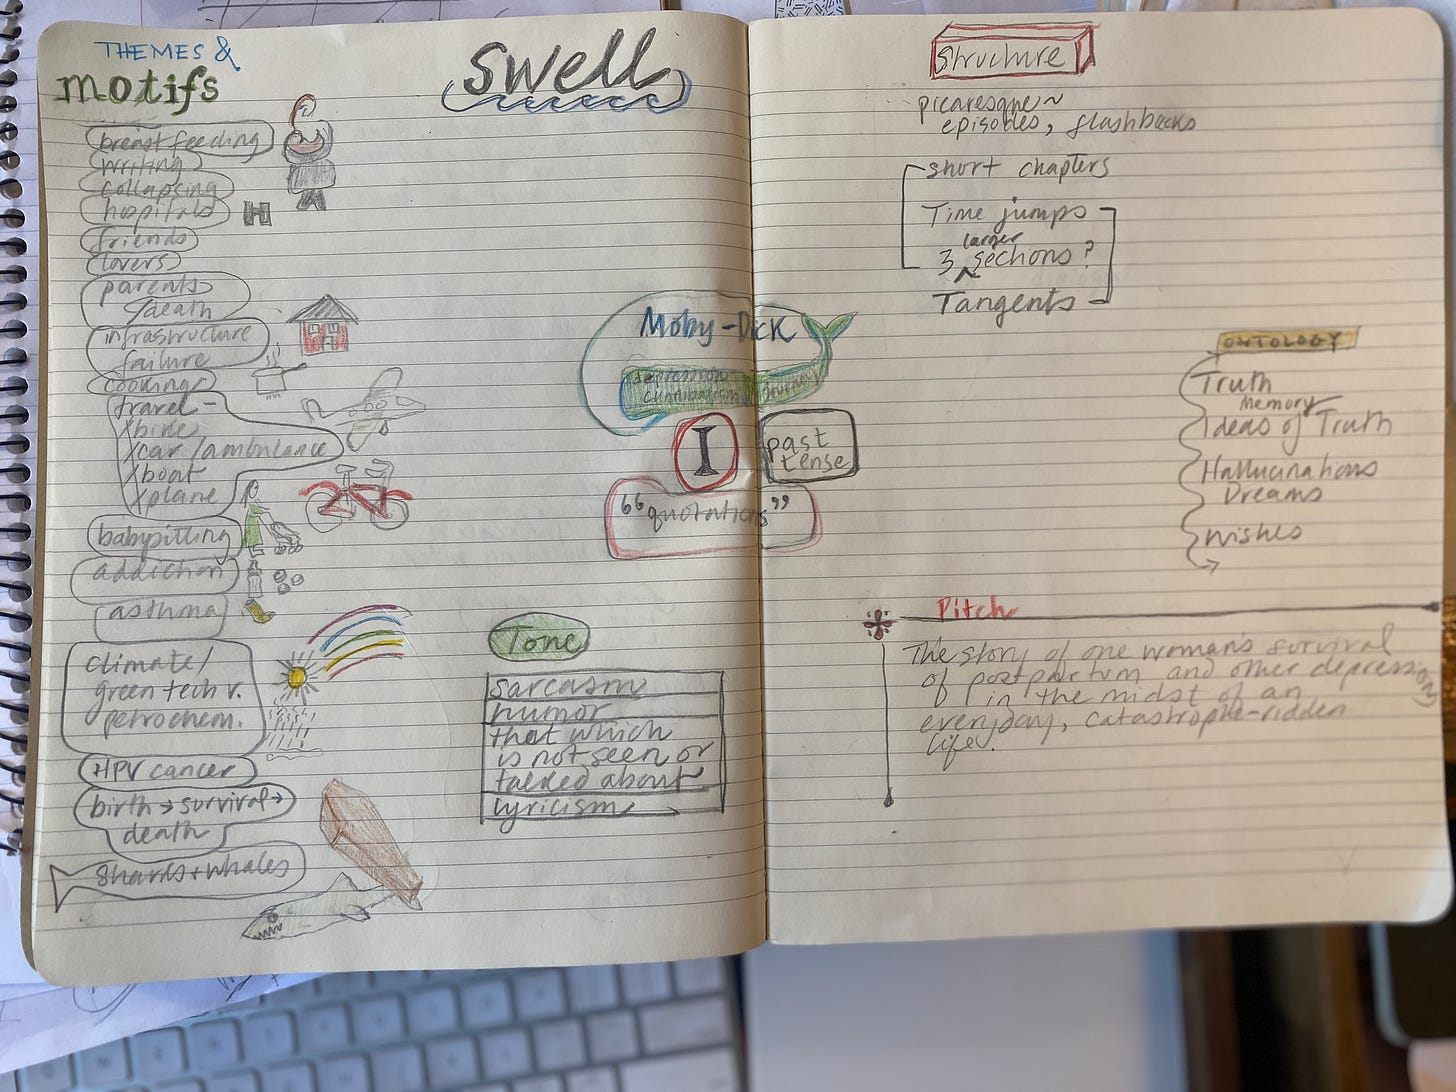 THEMES &
motifs
swell
breastfeeding
writing
collapsing
hospitals
H
friends
lovers
parents
/death
infrastructure
failure
cooking
travel -
bike
car/ambulance
boat
plane
babysitting
addiction
asthma
climate/
green tech v.
petrochem.
HPV cancer
birth → survival →
death
sharks + whales
Moby-Dick
depression
cannibalism
I
past
tense
"quotations"
Tone
sarcasm
humor
that which
is not seen or
talked about
lyricism
structure
picaresque ~
episodes, flashbacks
short chapters
Time jumps
larger
3 ^ sections?
Tangents
ONTOLOGY
Truth
memory
Ideas of Truth
Hallucinations
Dreams
wishes
Pitch
The story of one woman's survival
of postpartum and other depressions
in the midst of an
everyday, catastrophe-ridden
life.